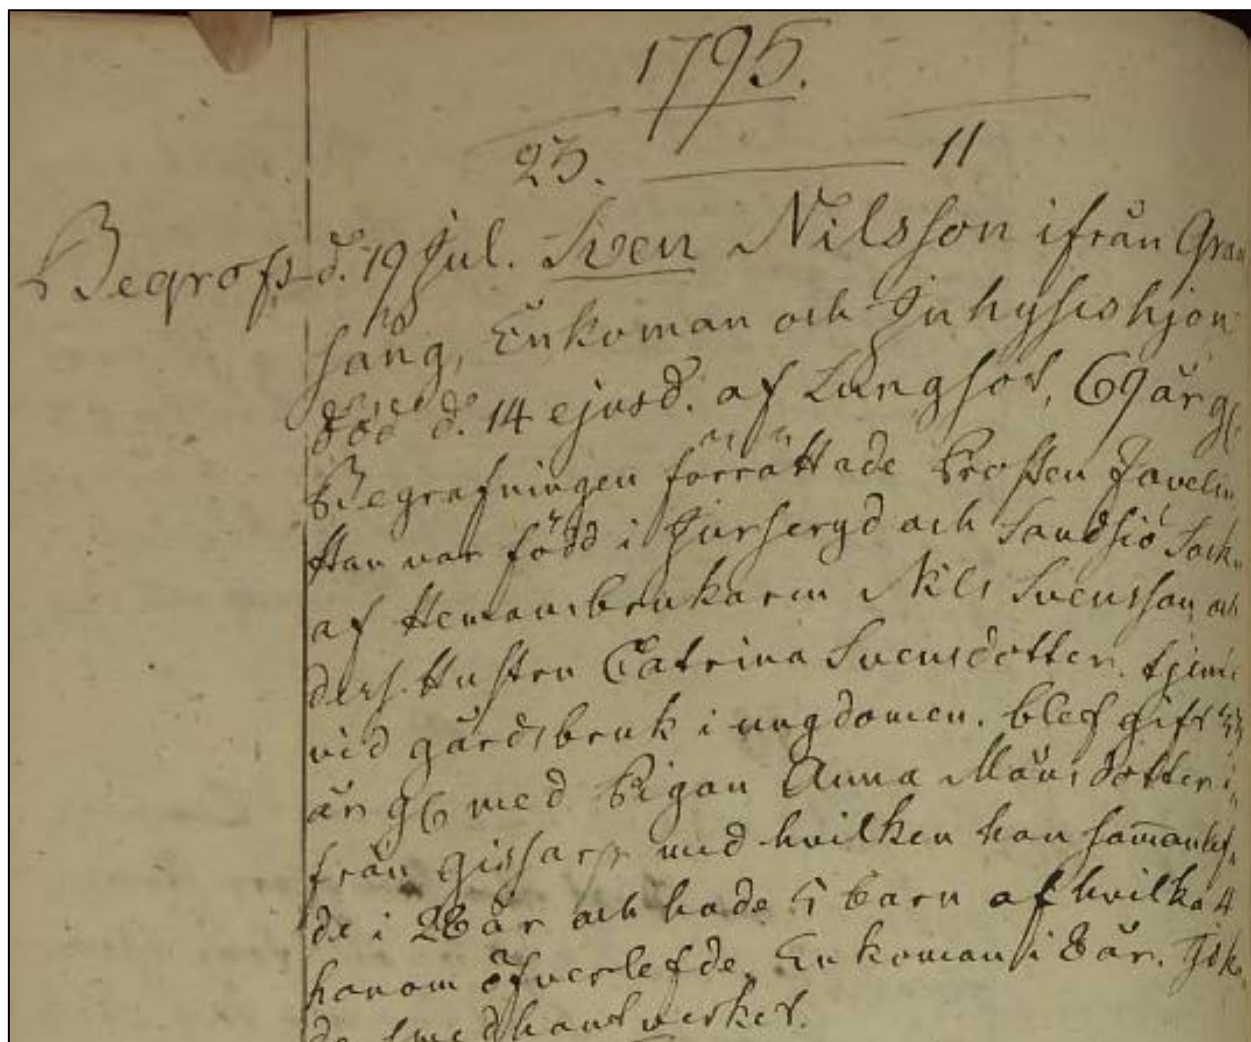 1795.
23. 11
Begrofs d. 19 Jul. Sven Nilsson ifrån Gran
häng, Enkoman och Inhyseshjon
död d. 14 ejusd. af Lungsot, 69 år gl.
Begrafningen förrättade Prosten Javelin
Han var född i Hurseryd och Sandsiö Sock
af Hemansbrukaren Nils Svensson och
ders. Hustru Catrina Svensdotter. tjent
vid gårdsbruk i ungdomen. blef gift 33
år gl. med Pigan Anna Månsdotter i
från Gissarp med hvilken han sam̄anlef
de i 28 år och hade 5 barn af hvilka 4
honom öfverlefde. Enkoman i 8 år. Idk
de smedhantverket.